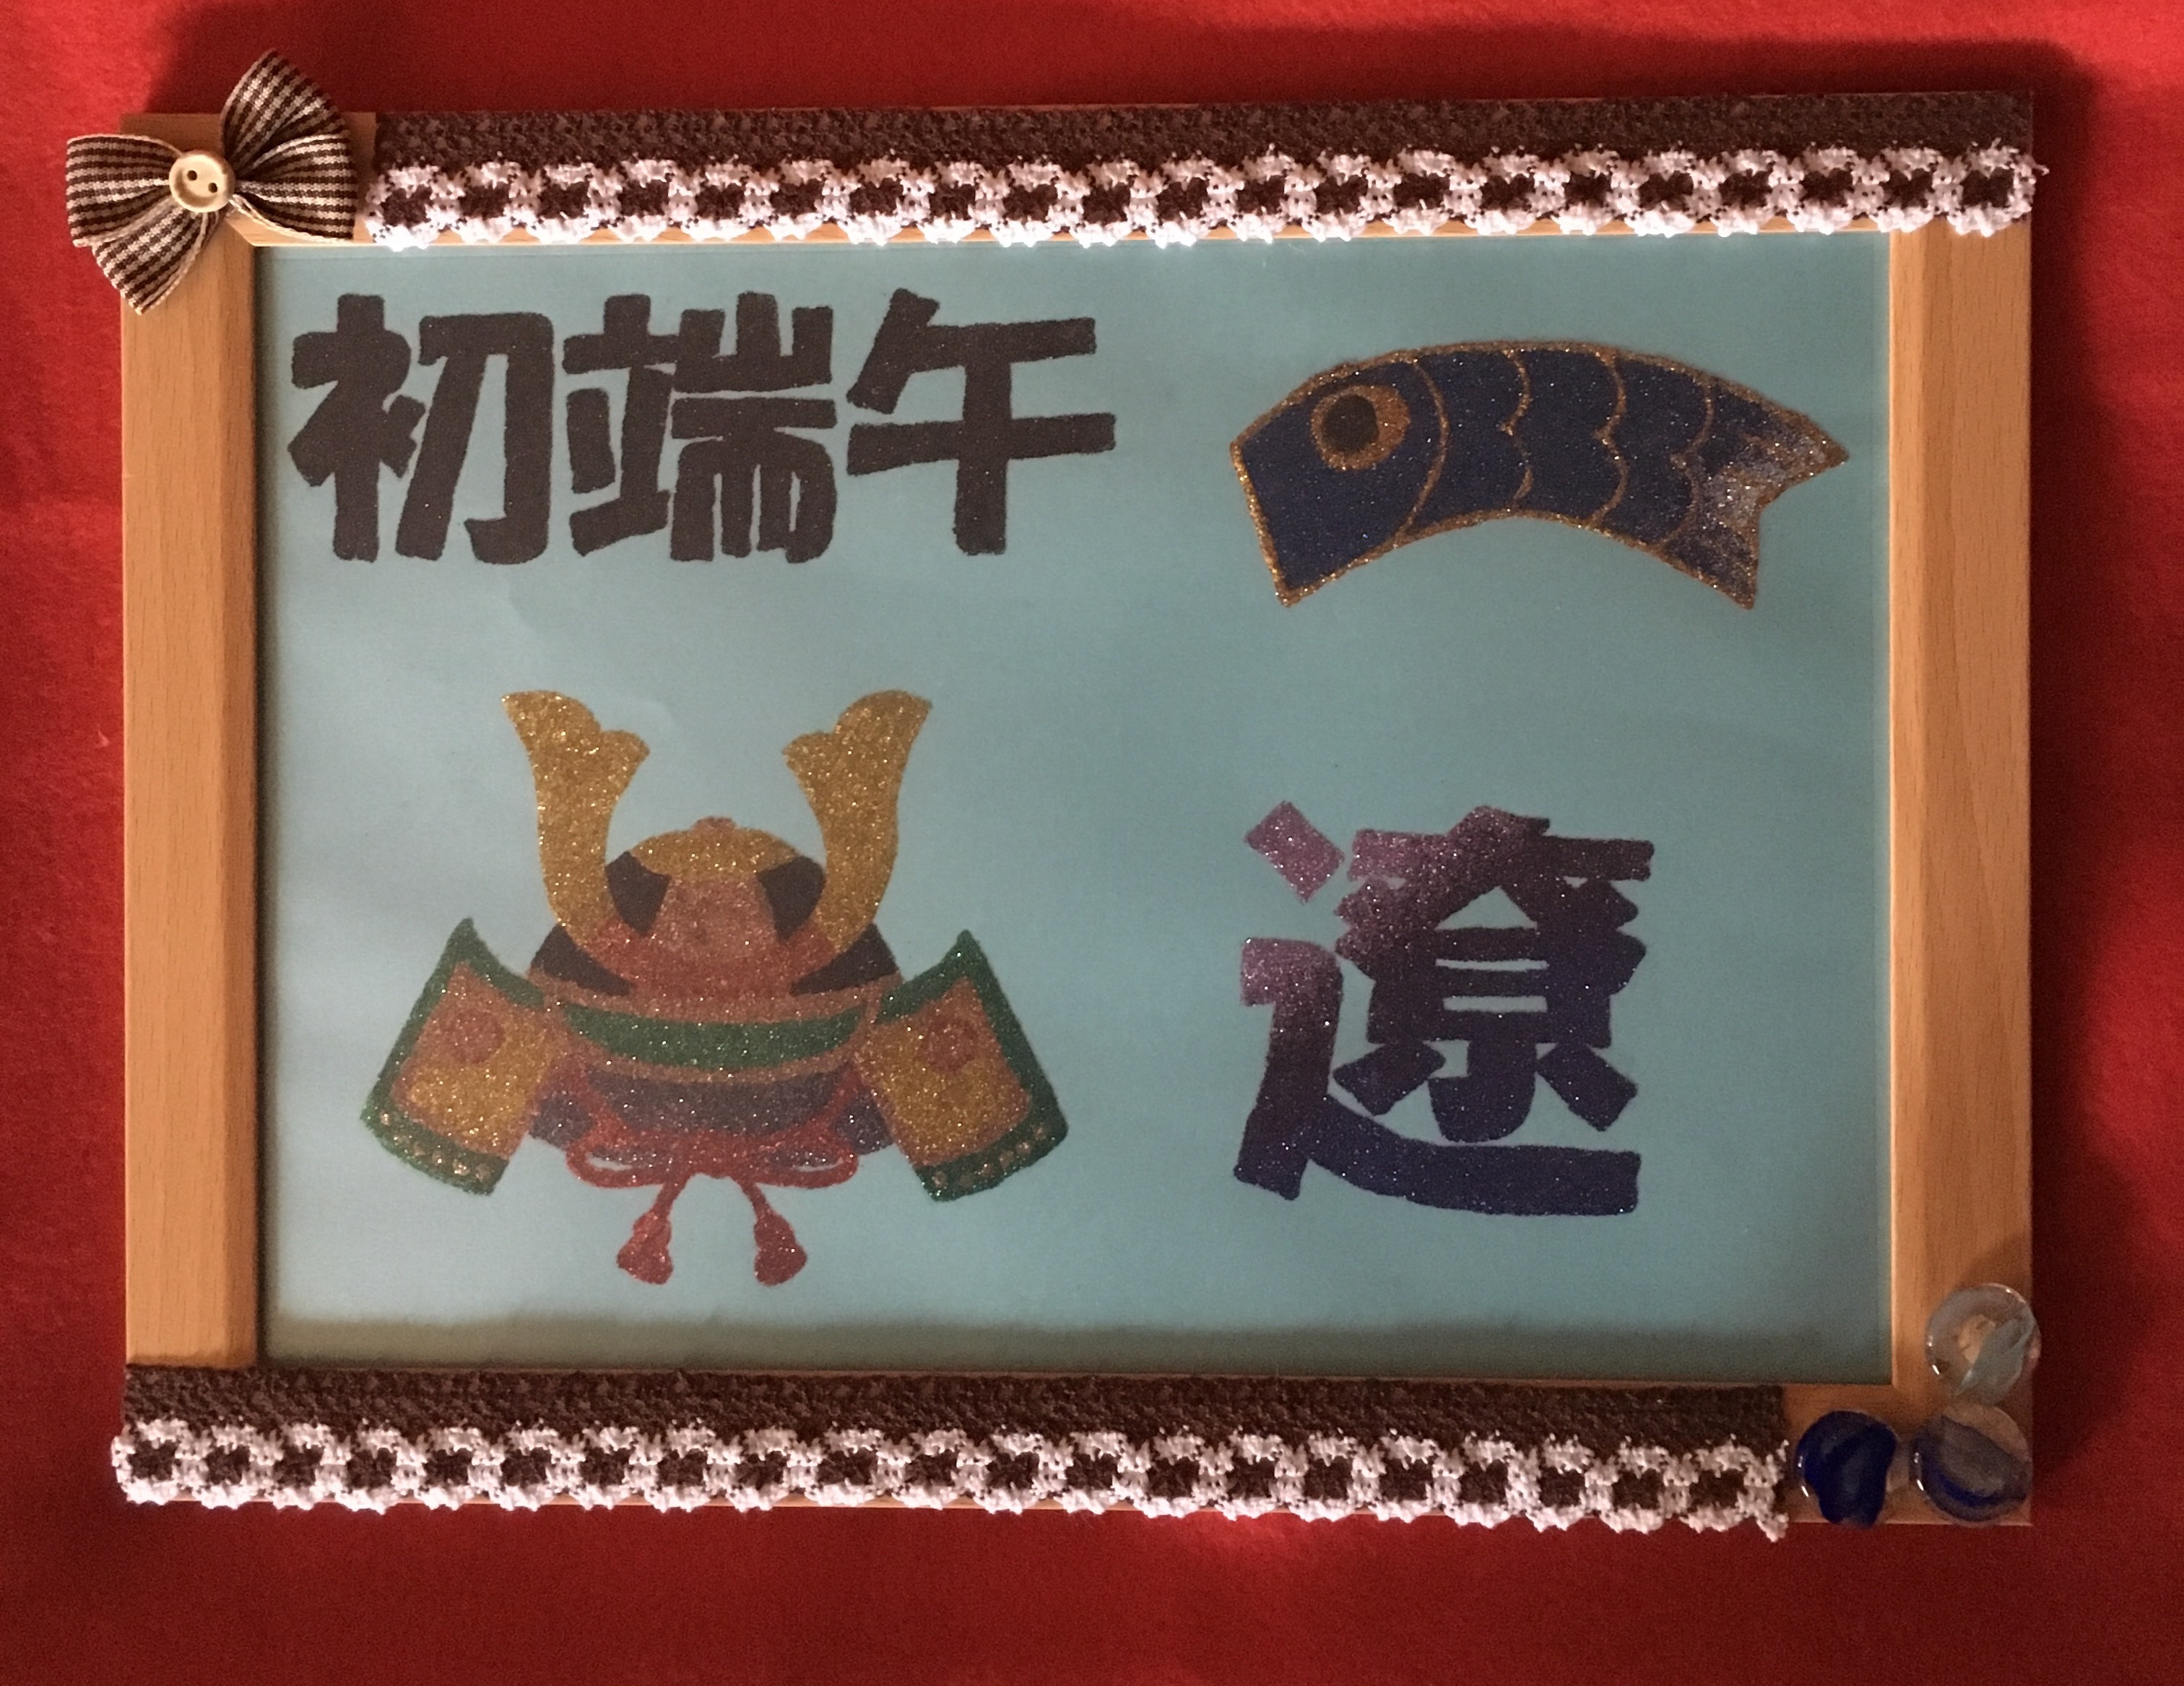 初端午
遼